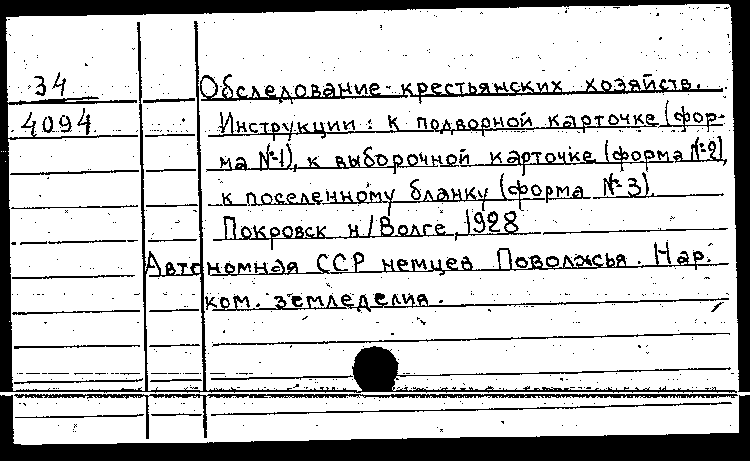 34
4094
Обследование крестьянских хозяйств.
Инструкции: к подворной карточке (фор-
ма №1), к выборочной карточке (форма №2),
к поселенному бланку (форма №3).
Покровск н/Волге, 1928
Автономная ССР немцев Поволжья. Нар.
ком. земледелия.